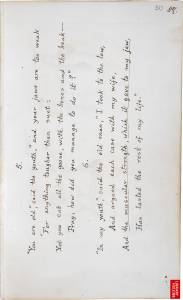 90
5.
"You are old," said the youth, "and your jaws are too weak
"For anything tougher than suet:
Yet you eat all the goose, with the bones and the beak—
Pray, how did you manage to do it?"
6.
"In my youth," said the old man, "I took to the law,
And argued each case with my wife,
And the muscular strength, which it gave to my jaw,
Has lasted the rest of my life."
BRITISH
LIBRARY